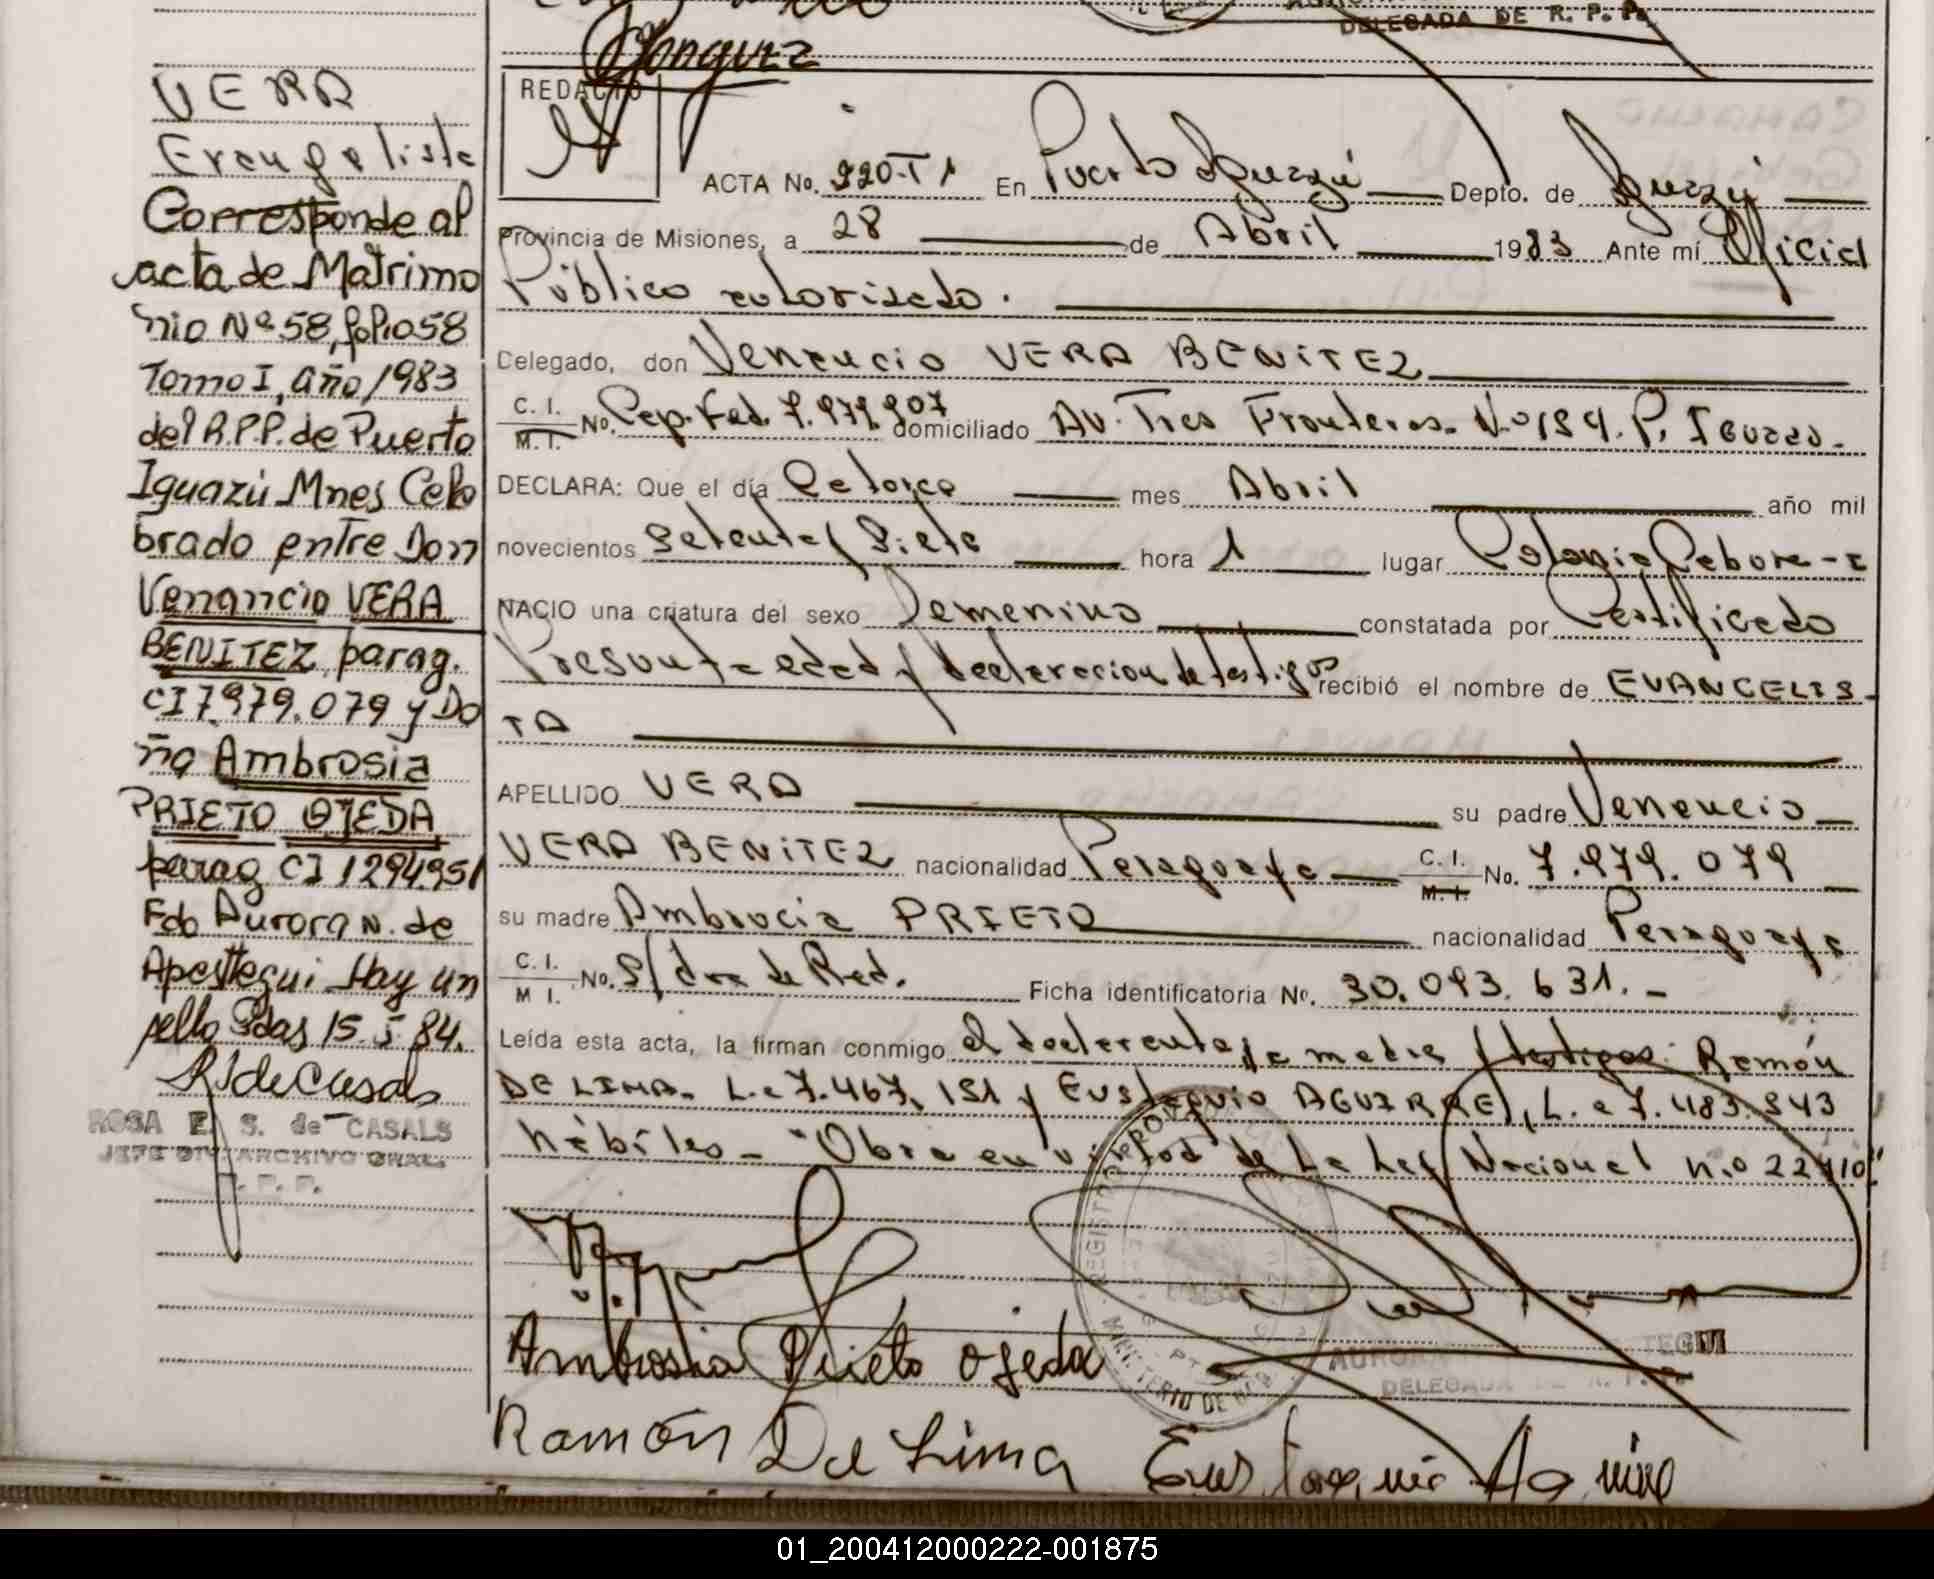 DELEGADA DE R. P. P.
VERA
Evangelista
Corresponde al
acta de Matrimo
nio Nº 58, folio 58
Tomo I, año 1983
del R.P.P. de Puerto
Iguazú Mnes Cele
brado entre Don
Venancio VERA
BENITEZ parag.
CI 7.979.079 y Do
ña Ambrosia
PRIETO OJEDA
parag CI 1294951
Fdo Aurora N. de
Apestegui Hay un
sello Pdas 15.5.84.
RSdeCasals
ROSA E. S. de CASALS
JEFE DIV. ARCHIVO GRAL.
R. P. P.
REDACTO
ACTA No. 220-T1 En Puerto Iguazú Depto. de Iguazú
Provincia de Misiones, a 28 de Abril 1983 Ante mí Oficial
Público autorizado.
Delegado, don Venancio VERA BENITEZ
C. I. M. I. No. Cep. Fed. 7.979.907 domiciliado Av. Tres Fronteras Nº 184. P. Iguazú.
DECLARA: Que el día Catorce mes Abril año mil
novecientos setenta y siete hora 1 lugar Colonia
NACIO una criatura del sexo Femenino constatada por Certificado
Presunta edad y declaracion de testigos recibió el nombre de EVANGELIS-
TA
APELLIDO VERA su padre Venancio
VERA BENITEZ nacionalidad Paraguaya C. I. M. I. No. 7.979.079
su madre Ambrocia PRIETO nacionalidad Paraguaya
C. I. M I. No. S/doc de Rad. Ficha identificatoria No. 30.093.631.-
Leída esta acta, la firman conmigo el declarante, la madre y testigos: Ramón
DE LIMA. L.e 7.467.151 y Eustaquio AGUIRRE, L.e 7.483.343
hábiles - "Obra en virtud de la Ley Nacional n.o 22410"
Ambrosia Prieto Ojeda
AURORA TEGUI
DELEGADA DE R. P. P.
Ramón De Lima Eustaquio Aguirre
01_200412000222-001875